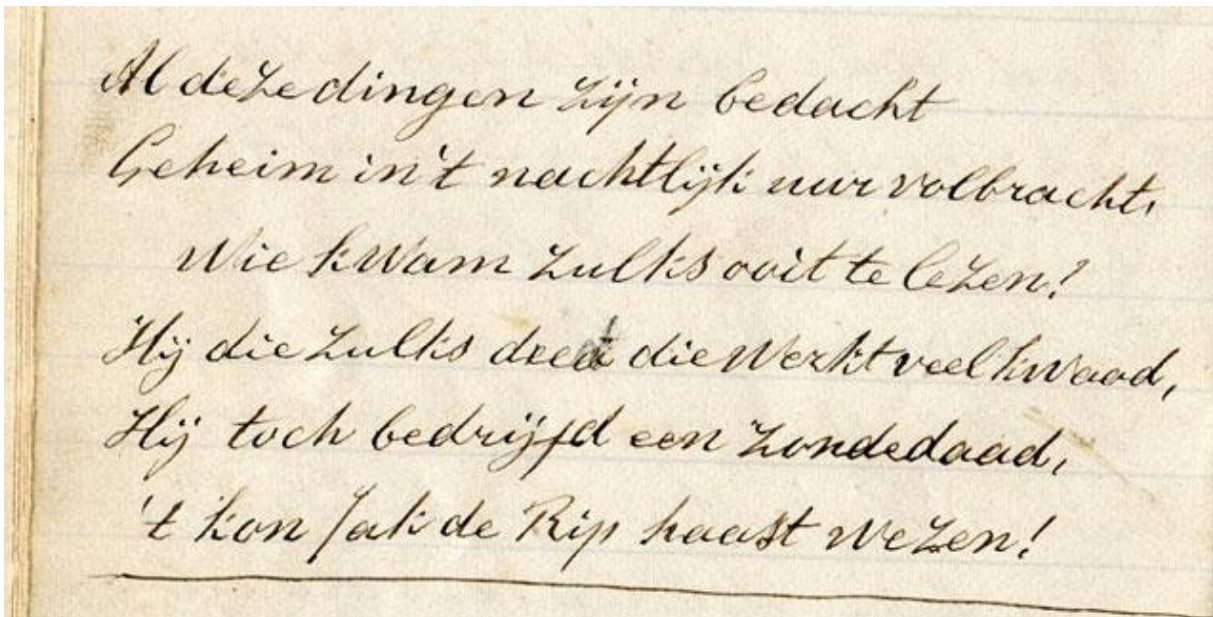 Al deze dingen zijn bedacht
Geheim in 't nachtlijk uur volbracht,
Wie kwam zulks ooit te lezen?
Hij die zulks deed die werkt veel kwaad,
Hij toch bedrijfd een zondedaad,
't kon Jak de Rip haast wezen!